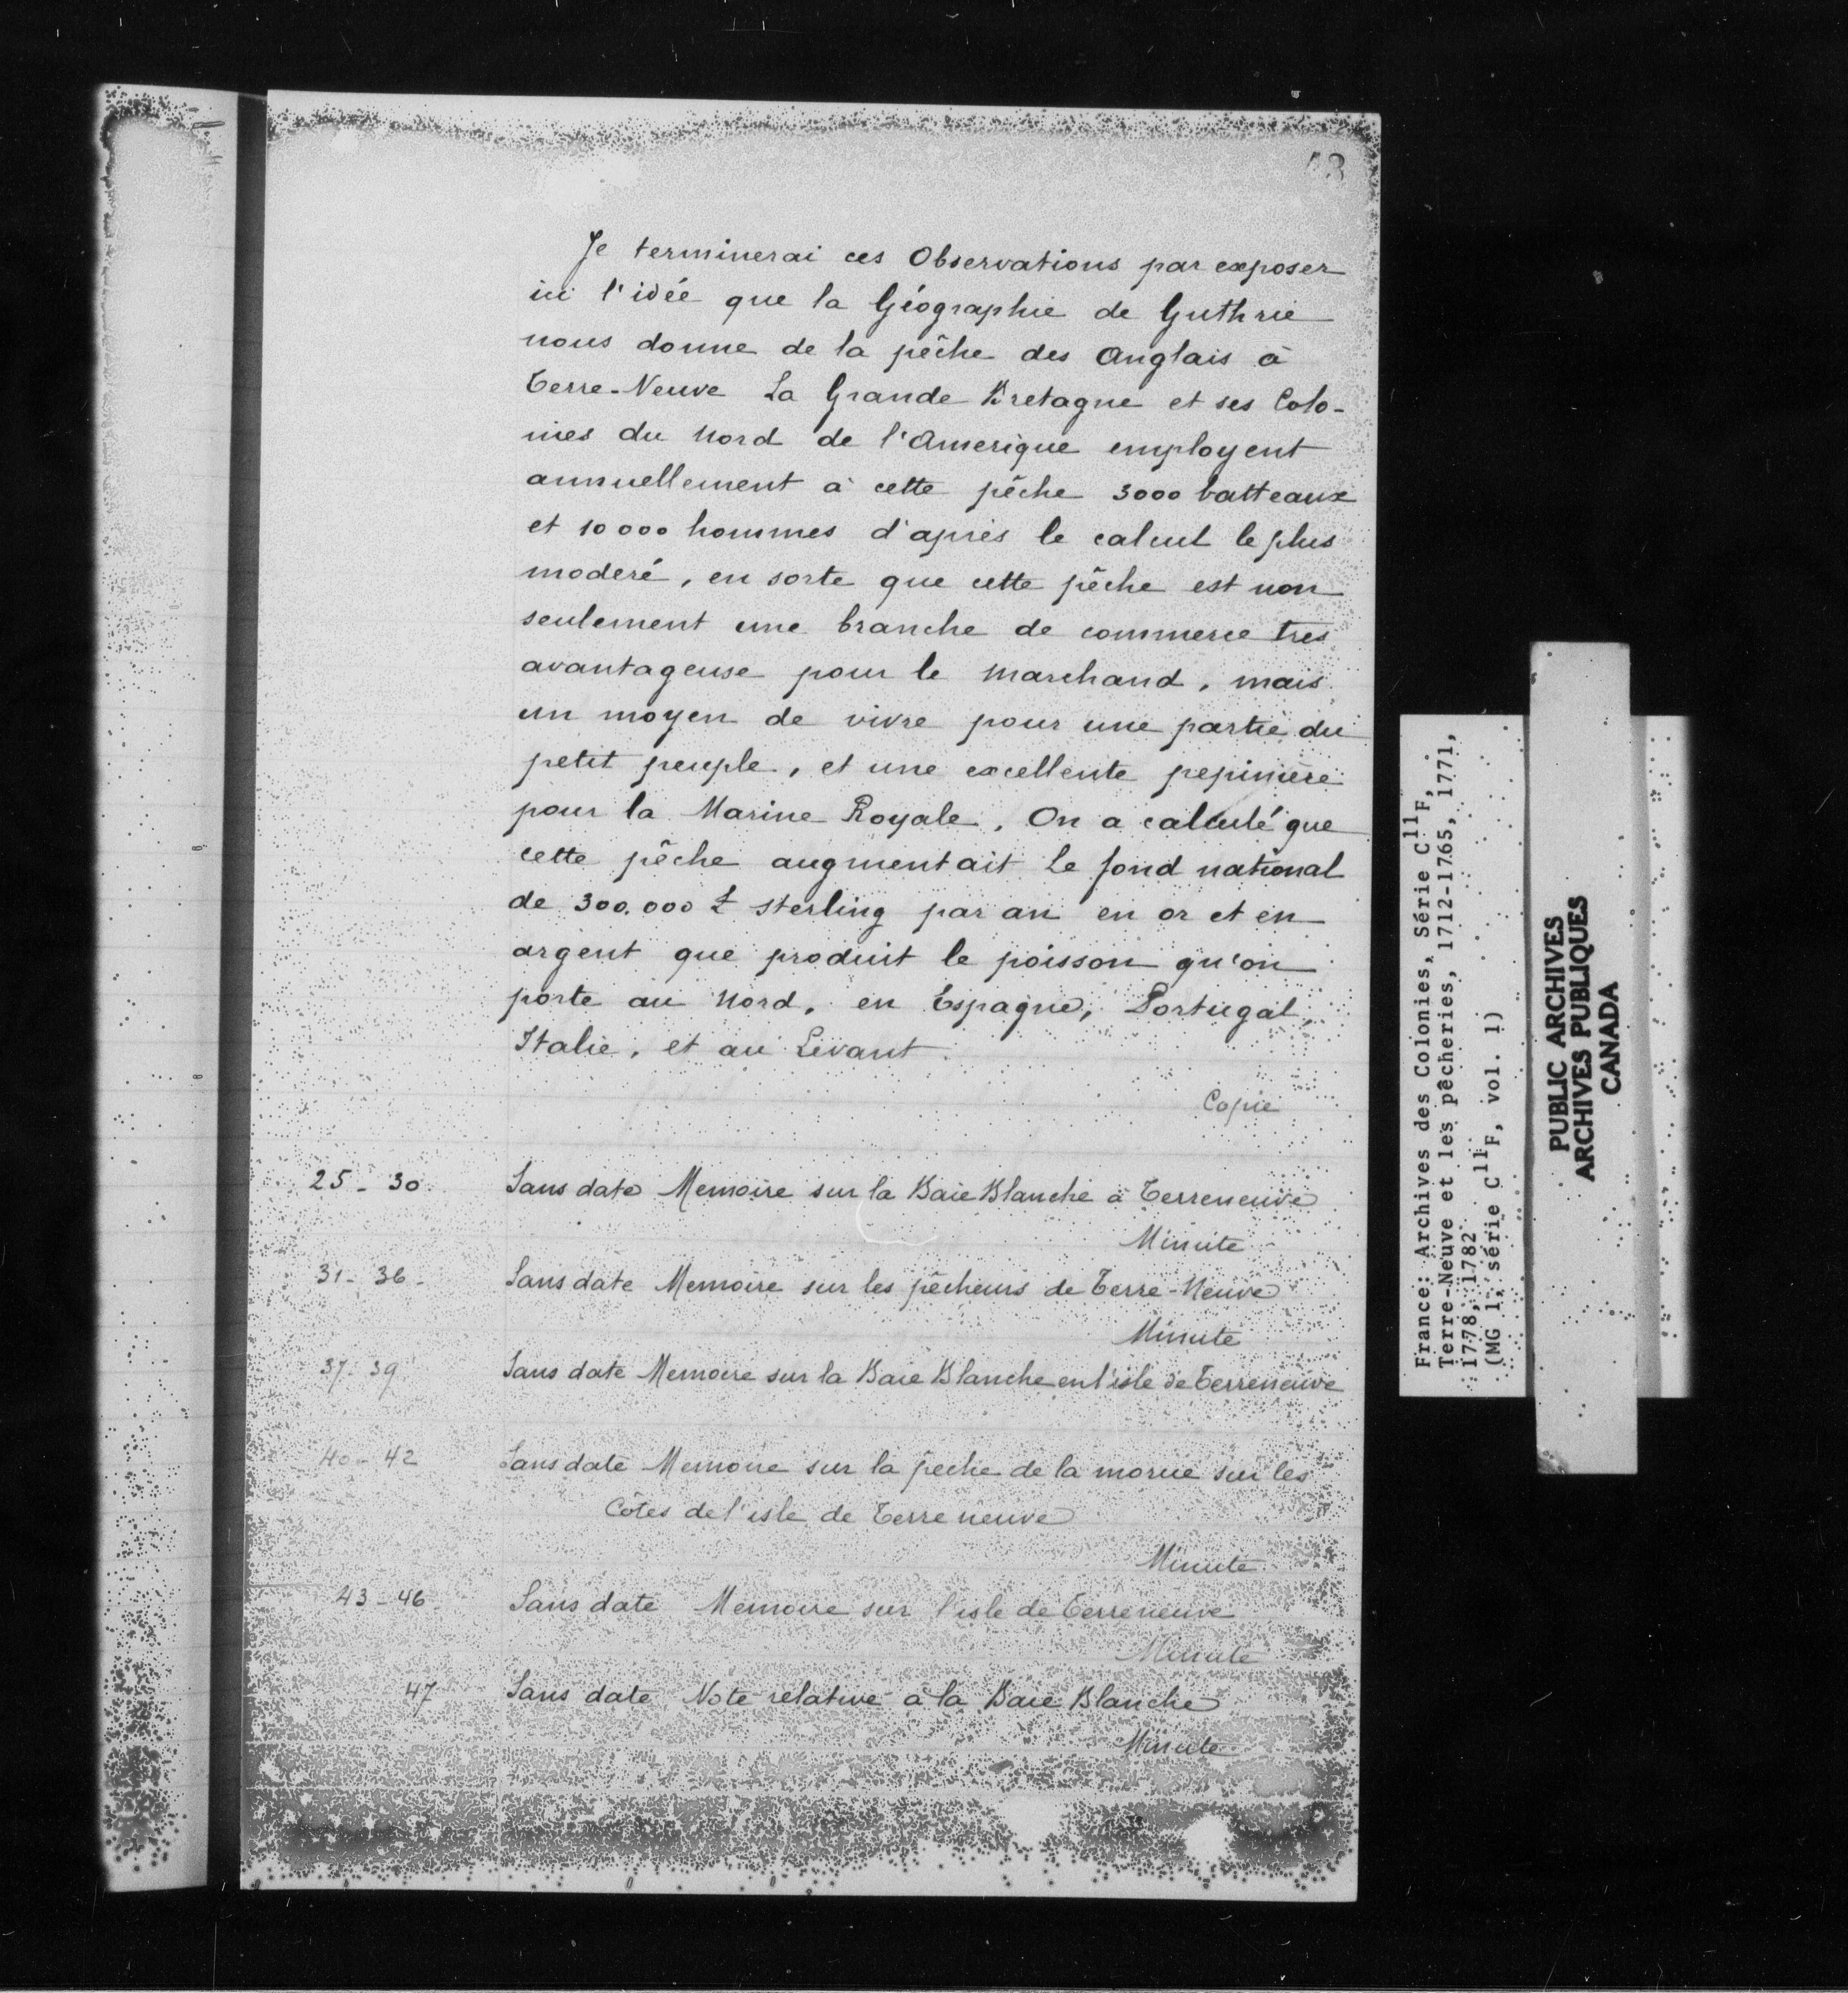 43
Je terminerai ces Observations par exposer
ici l'idée que la Géographie de Guthrie
nous donne de la pêche des Anglais à
Terre-Neuve La Grande Bretagne et ses Colo-
nies du Nord de l'Amerique employent
annuellement à cette pêche 3000 batteaux
et 10 000 hommes d'après le calcul le plus
moderé, en sorte que cette pêche est non
seulement une branche de commerce tres
avantageuse pour le Marchand, mais
un moyen de vivre pour une partie du
petit peuple, et une excellente pepinière
pour la Marine Royale. On a calculé que
cette pêche augmentait le fond national
de 300.000 £ sterling par an en or et en
argent que produit le poisson qu'on
porte au Nord, en Espagne, Portugal,
Italie, et au Levant.
Copie
25 - 30. Sans date Memoire sur la Baie Blanche à Terreneuve
Minute
31 - 36 - Sans date Memoire sur les pêcheurs de Terre-Neuve
Minute
37 - 39 Sans date Memoire sur la Baie Blanche en l'isle de Terreneuve
40 - 42 Sans date Memoire sur la pêche de la morue sur les
Côtes de l'isle de Terre neuve
Minute
43 - 46 - Sans date Memoire sur l'isle de Terreneuve
Minute
47 Sans date Note relative à la Baie Blanche
Minute
France: Archives des Colonies, Série C11F,
Terre-Neuve et les pêcheries, 1712-1765, 1771,
1778, 1782
(MG 1, série C11F, vol. 1)
PUBLIC ARCHIVES
ARCHIVES PUBLIQUES
CANADA